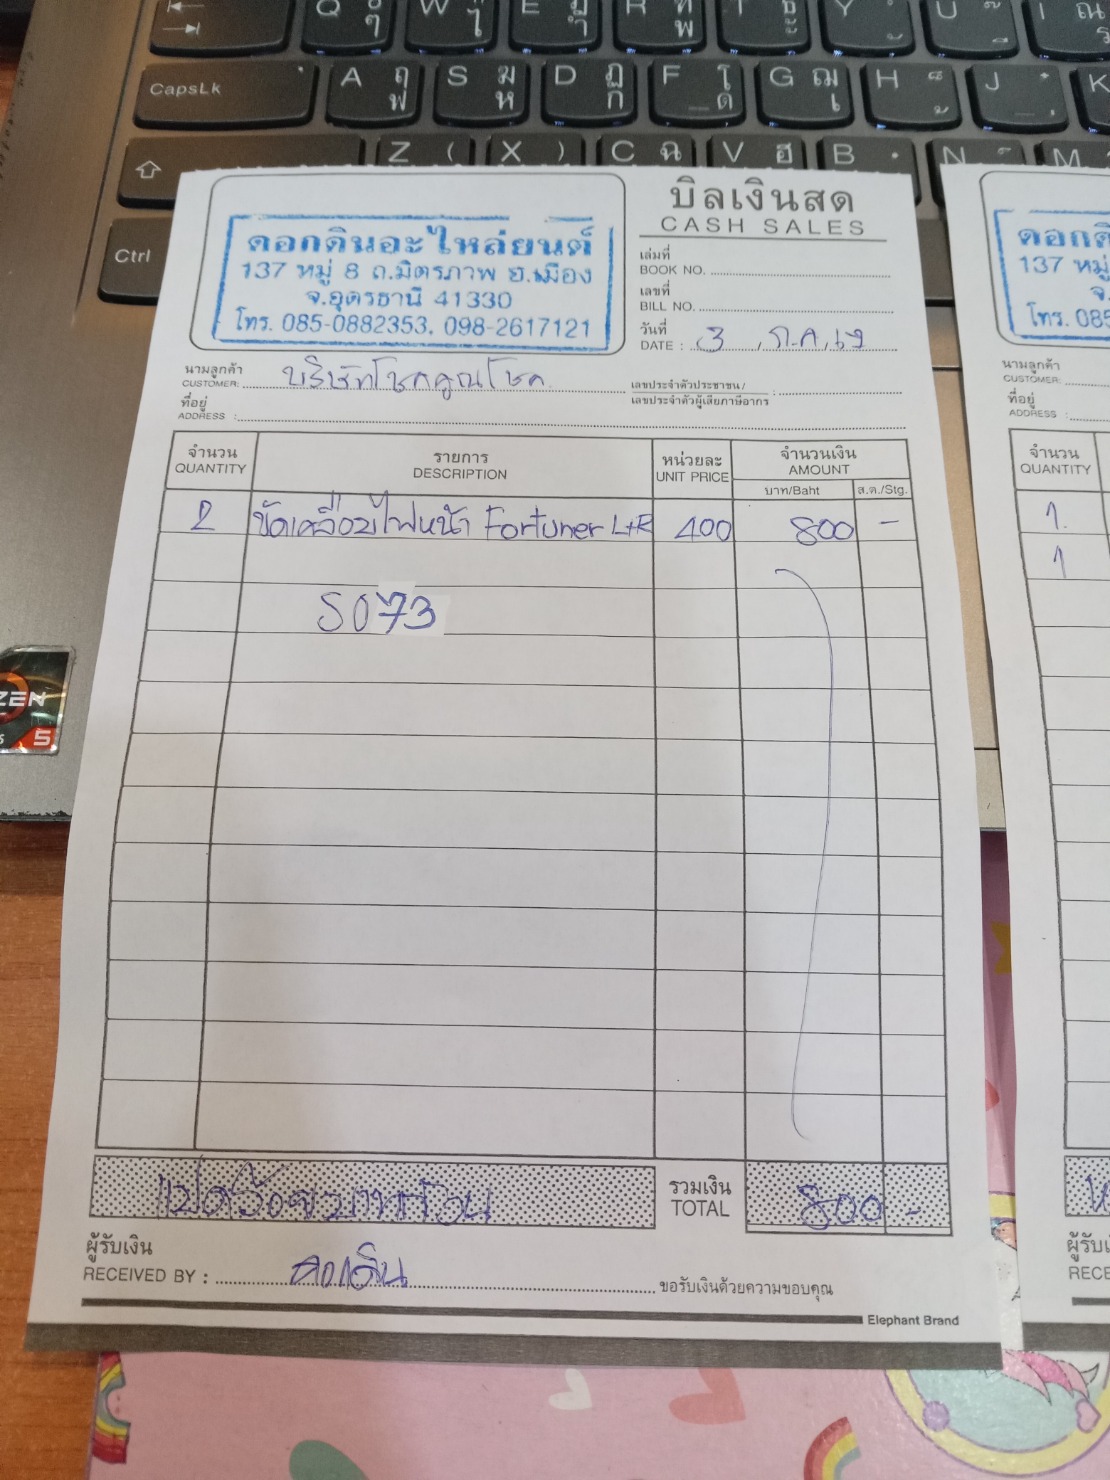 Q ๆ
W ไ
E ำ
R พ
T ะ
Y
U
I ณ ร
CapsLk
A ฤ ฟ
S ฆ ห
D ฏ ก
F โ ด
G ฌ เ
H
J
K
Z (
X )
C ฉ
V ฮ
B
N
M
Ctrl
ZEN
5
บิลเงินสด
CASH SALES
ดอกดินอะไหล่ยนต์
137 หมู่ 8 ถ.มิตรภาพ อ.เมือง
จ.อุดรธานี 41330
โทร. 085-0882353, 098-2617121
เล่มที่
BOOK NO.
เลขที่
BILL NO.
วันที่
DATE : 3 ก.ค. 69
นามลูกค้า
CUSTOMER: บริษัทโชคคูณโชค
เลขประจำตัวประชาชน /
เลขประจำตัวผู้เสียภาษีอากร :
ที่อยู่
ADDRESS :
จำนวน รายการ หน่วยละ จำนวนเงิน
QUANTITY DESCRIPTION UNIT PRICE AMOUNT
บาท/Baht ส.ต./Stg.
2 ขัดเคลือบไฟหน้า Fortuner L+R 400 800 -
S073
แปดร้อยบาทถ้วน
รวมเงิน
TOTAL 800 -
ผู้รับเงิน
RECEIVED BY : ดอกดิน
ขอรับเงินด้วยความขอบคุณ
Elephant Brand
ดอกดิ
137 หมู่
จ.
โทร. 085
นามลูกค้า
CUSTOMER:
ที่อยู่
ADDRESS :
จำนวน
QUANTITY
1
1
ผู้รับเ
RECE